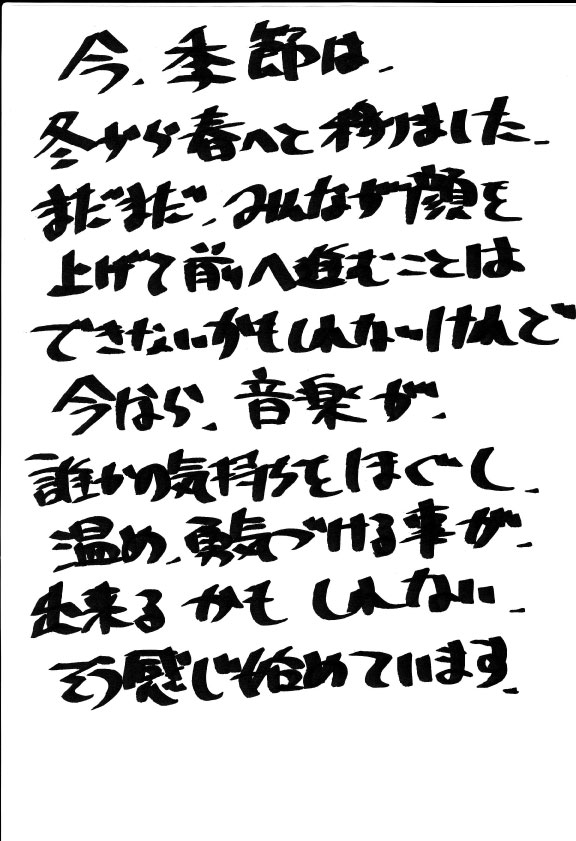 今、季節は、
冬から春へと移りました、
まだまだ、みんなが顔を
上げて前へ進むことは
できないかもしれないけれど
今なら、音楽が、
誰かの気持ちをほぐし、
温め、勇気づける事が、
出来るかもしれない、
そう感じ始めています、